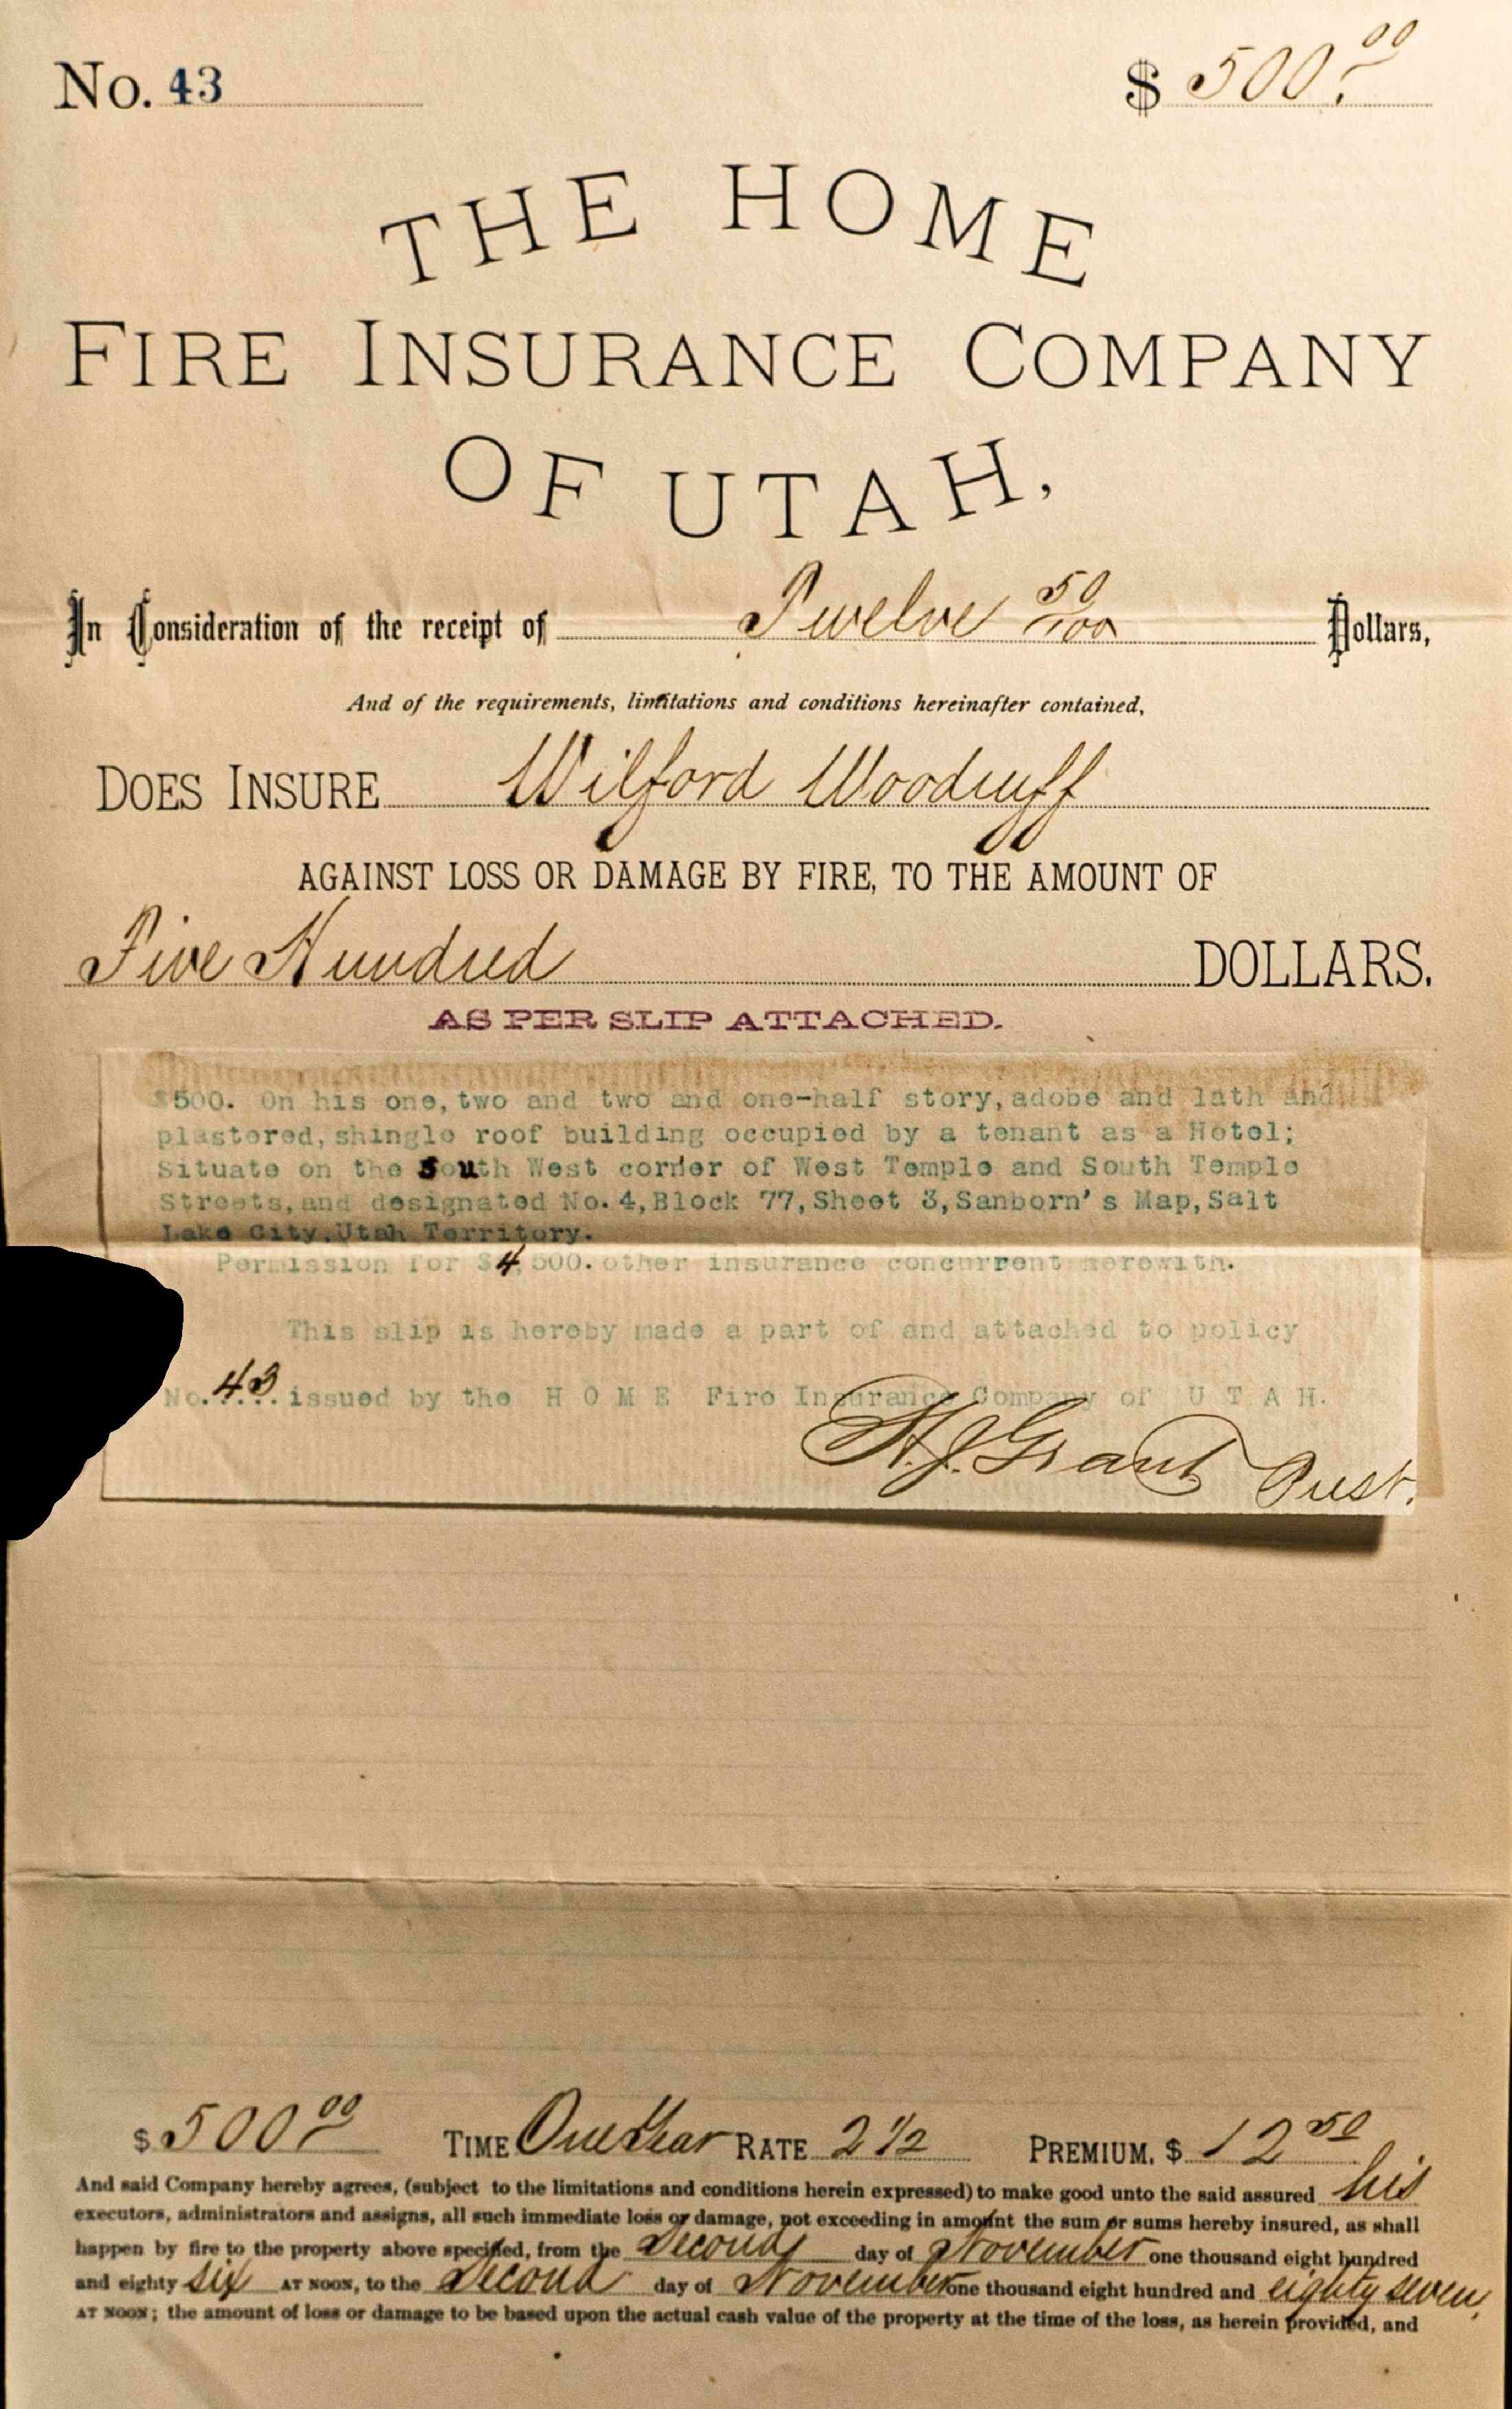 No. 43 $ 500.00
THE HOME
FIRE INSURANCE COMPANY
OF UTAH,
In Consideration of the receipt of Twelve 50/100 Dollars,
And of the requirements, limitations and conditions hereinafter contained,
DOES INSURE Wilford Woodruff
AGAINST LOSS OR DAMAGE BY FIRE, TO THE AMOUNT OF
Five Hundred DOLLARS.
AS PER SLIP ATTACHED.
$500. On his one, two and two and one-half story, adobe and lath and
plastered, shingle roof building occupied by a tenant as a Hotel;
Situate on the South West corner of West Temple and South Temple
Streets, and designated No. 4, Block 77, Sheet 3, Sanborn's Map, Salt
Lake City, Utah Territory.
Permission for $4,500. other insurance concurrent herewith.
This slip is hereby made a part of and attached to policy
No. 43. issued by the H O M E Fire Insurance Company of U T A H.
H. J. Grant Prest.
$ 500 00 TIME One Year RATE 2 1/2 PREMIUM. $ 12 50
And said Company hereby agrees, (subject to the limitations and conditions herein expressed) to make good unto the said assured his
executors, administrators and assigns, all such immediate loss or damage, not exceeding in amount the sum or sums hereby insured, as shall
happen by fire to the property above specified, from the Second day of November one thousand eight hundred
and eighty six AT NOON, to the Second day of November one thousand eight hundred and eighty seven,
AT NOON; the amount of loss or damage to be based upon the actual cash value of the property at the time of the loss, as herein provided, and